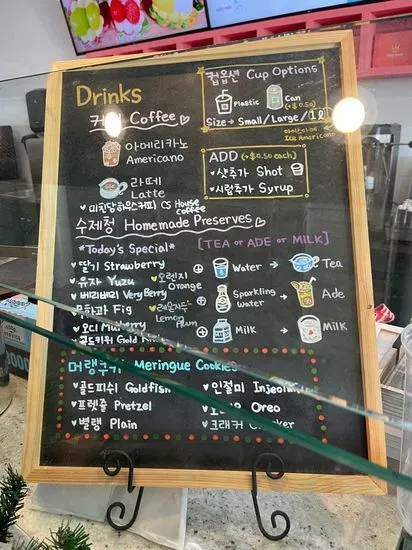 Drinks
커피 Coffee
아메리카노
Americano
라떼
Latte
미칫당하우스커피 CS House coffee
컵옵션 Cup Options
Plastic
Can
(+$0.50)
Size → Small/Large/1L
아이스아메리카노
Ice Americano
ADD (+$0.50 each)
샷추가 Shot
시럽추가 Syrup
수제청 Homemade Preserves
*Today's Special*
딸기 Strawberry
유자 Yuzu
오렌지 Orange
베리베리 Very Berry
무화과 Fig
레몬자두 Lemon Plum
오디 Mulberry
골드키위 Gold
[TEA or ADE or MILK]
Water → Tea
Sparkling Water → Ade
Milk → Milk
머랭쿠키 Meringue Cookies
골드피쉬 Goldfish
인절미 Injeolmi
프렛즐 Pretzel
Oreo
별램 Plain
크래커